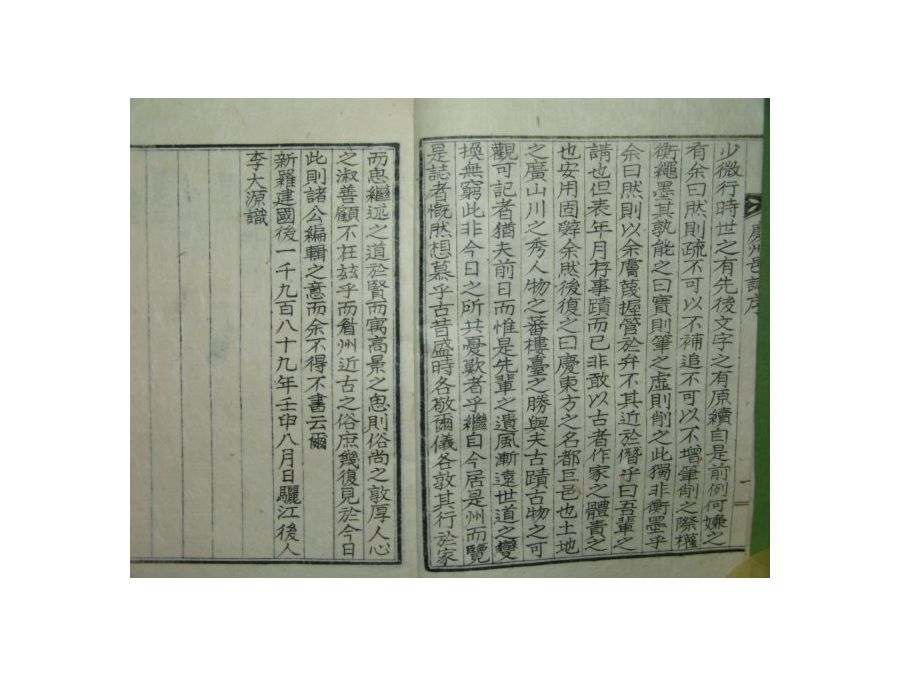 慶州邑誌序
一
少微行時世之有先後文字之有原續自是前例何嫌之
有余曰然則疏不可以不補追不可以不增筆削之際權
衡繩墨其孰能之曰實則筆之虛則削之此獨非衡墨乎
余曰然則以余膚蔑握管於弁不其近於僭乎曰吾輩之
請也但表年月存事蹟而已非敢以古者作家之體責之
也安用固辭余然後復之曰慶東方之名都巨邑也土地
之廣山川之秀人物之蕃樓臺之勝與夫古蹟古物之可
觀可記者猶夫前日而惟是先輩之遺風漸遠世道之變
換無窮此非今日之所共憂歎者乎繼自今居是州而覽
是誌者慨然想慕乎古昔盛時各敬爾儀各敦其行於家
而思繼述之道於賢而寓高景之思則俗尚之敦厚人心
之淑善顧不在玆乎而舊州近古之俗庶幾復見於今日
此則諸公編輯之意而余不得不書云爾
新羅建國後一千九百八十九年壬申八月日驪江後人
李大源識